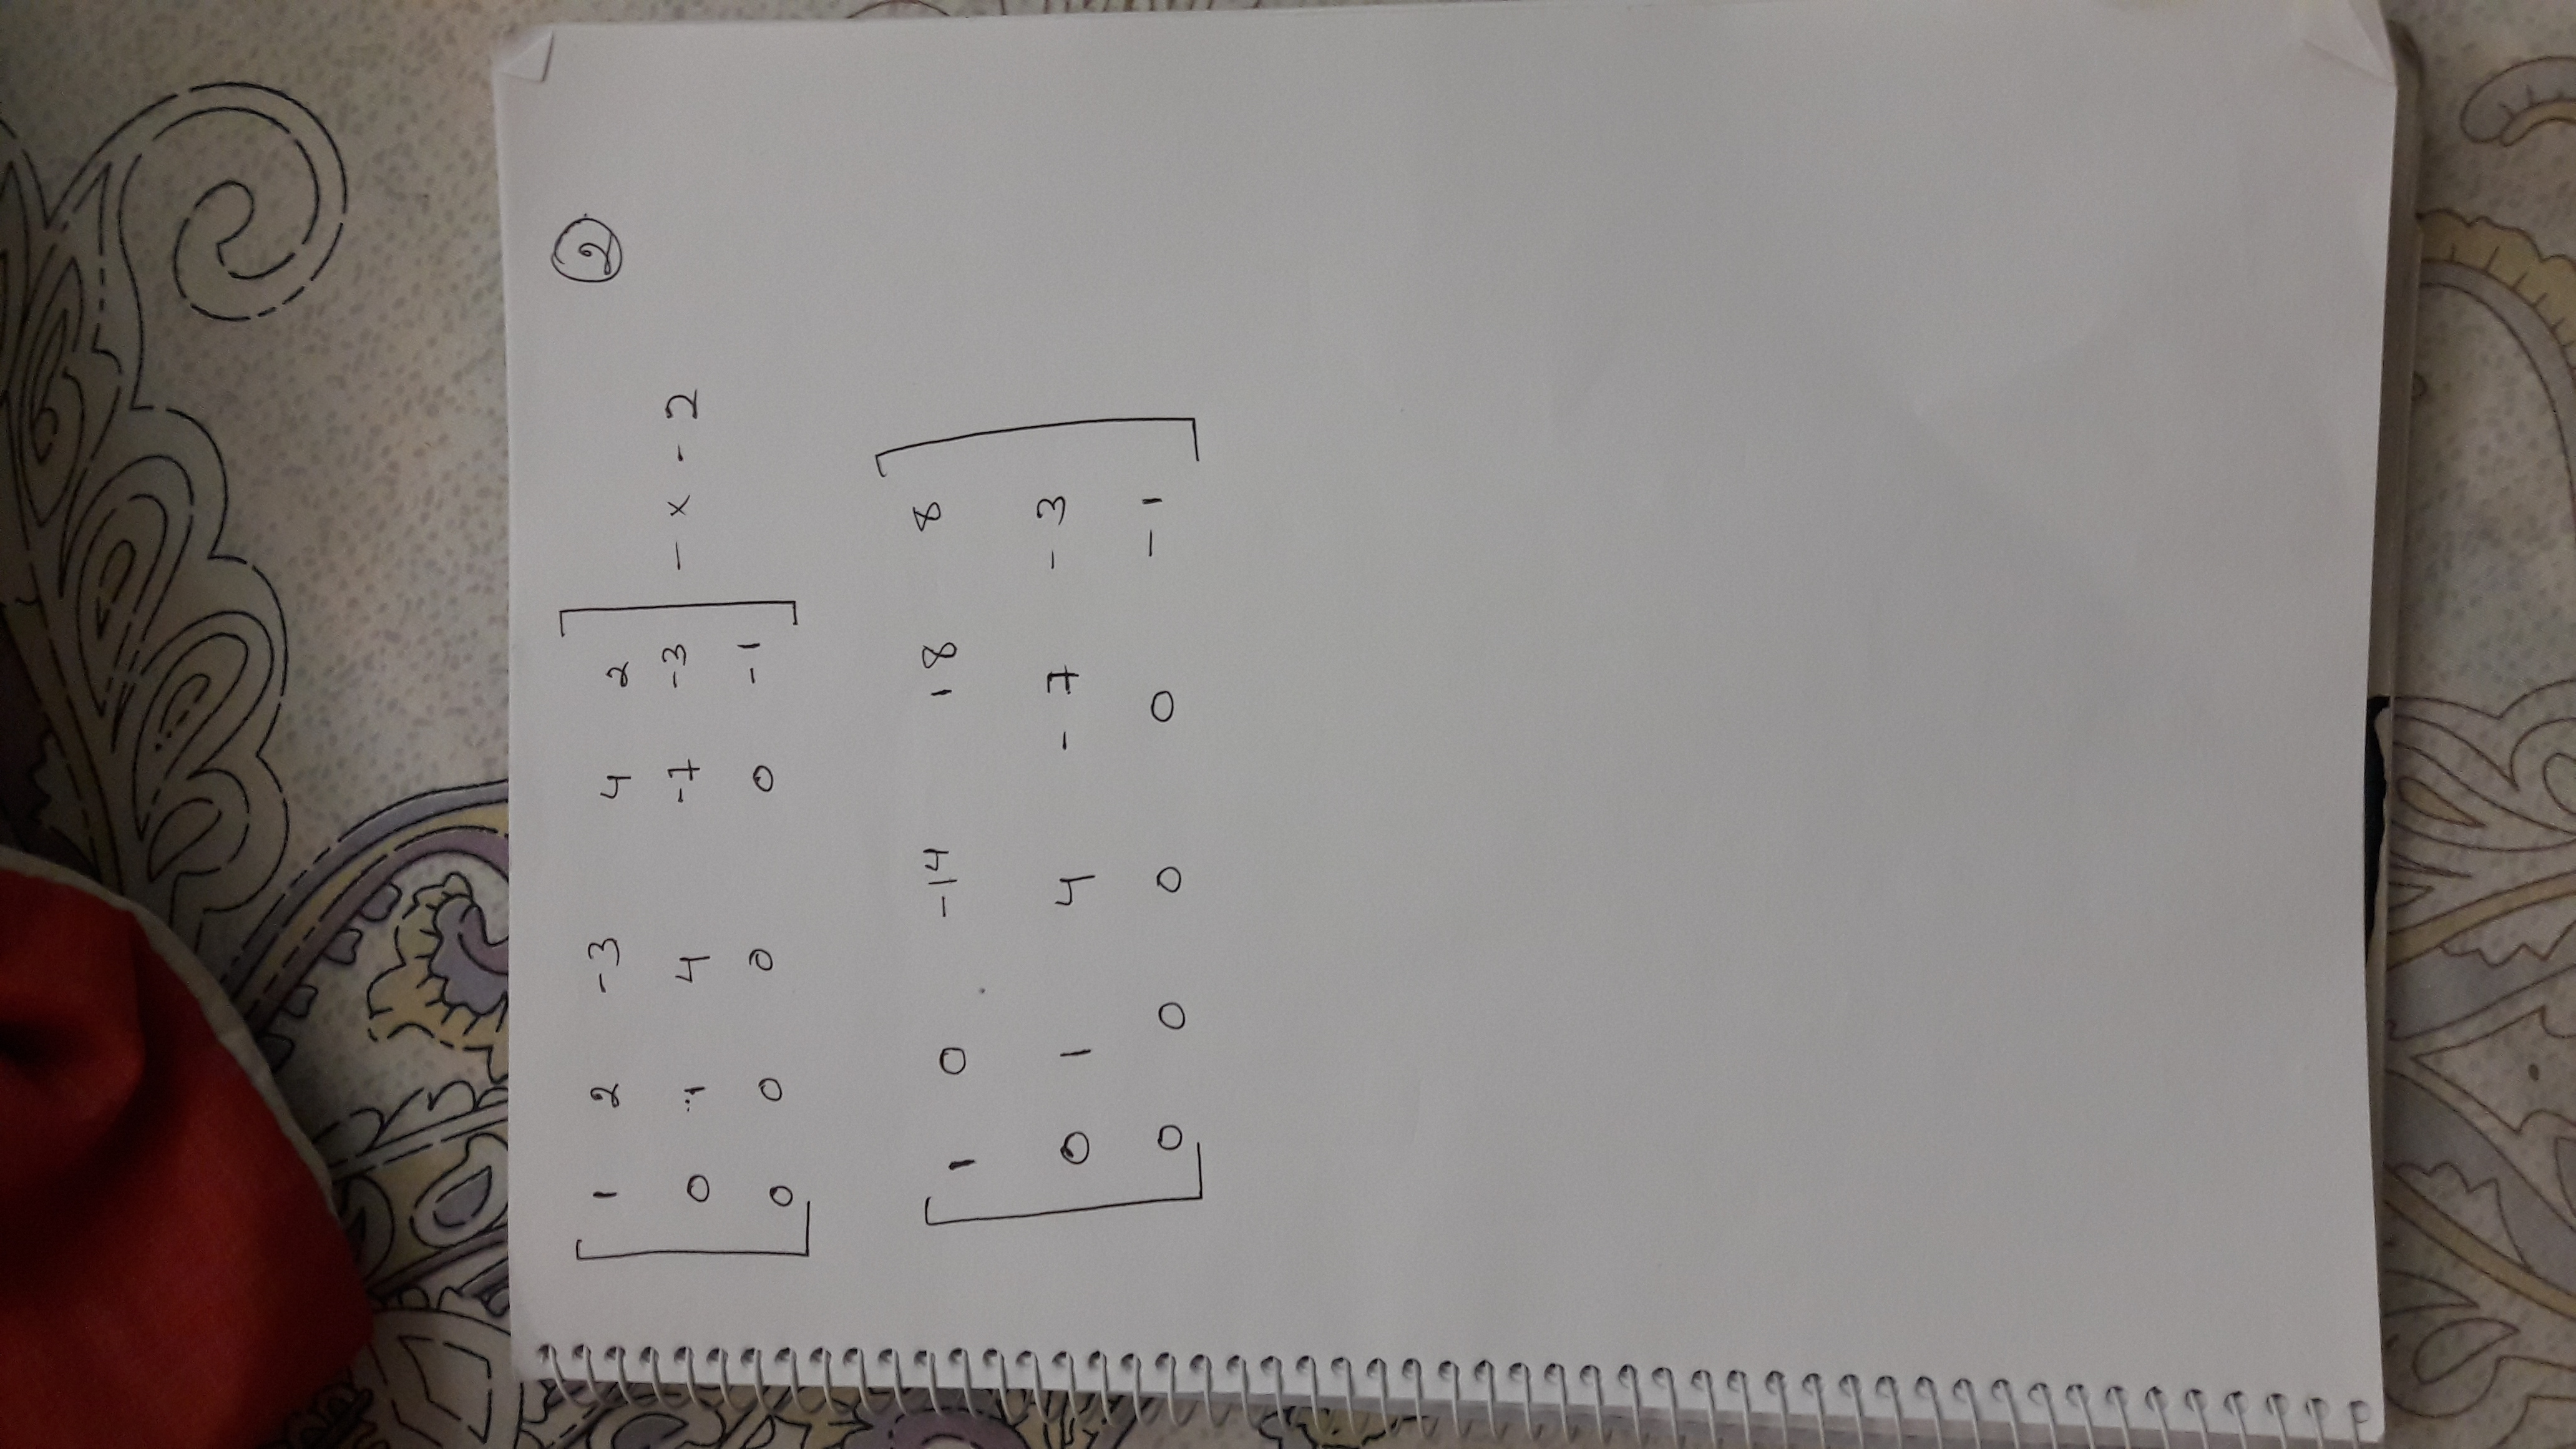 2
1 2 -3 4 2
0 1 4 -7 -3 - x -2
0 0 0 0 -1
1 0 -14 18 8
0 1 4 -7 -3
0 0 0 0 -1